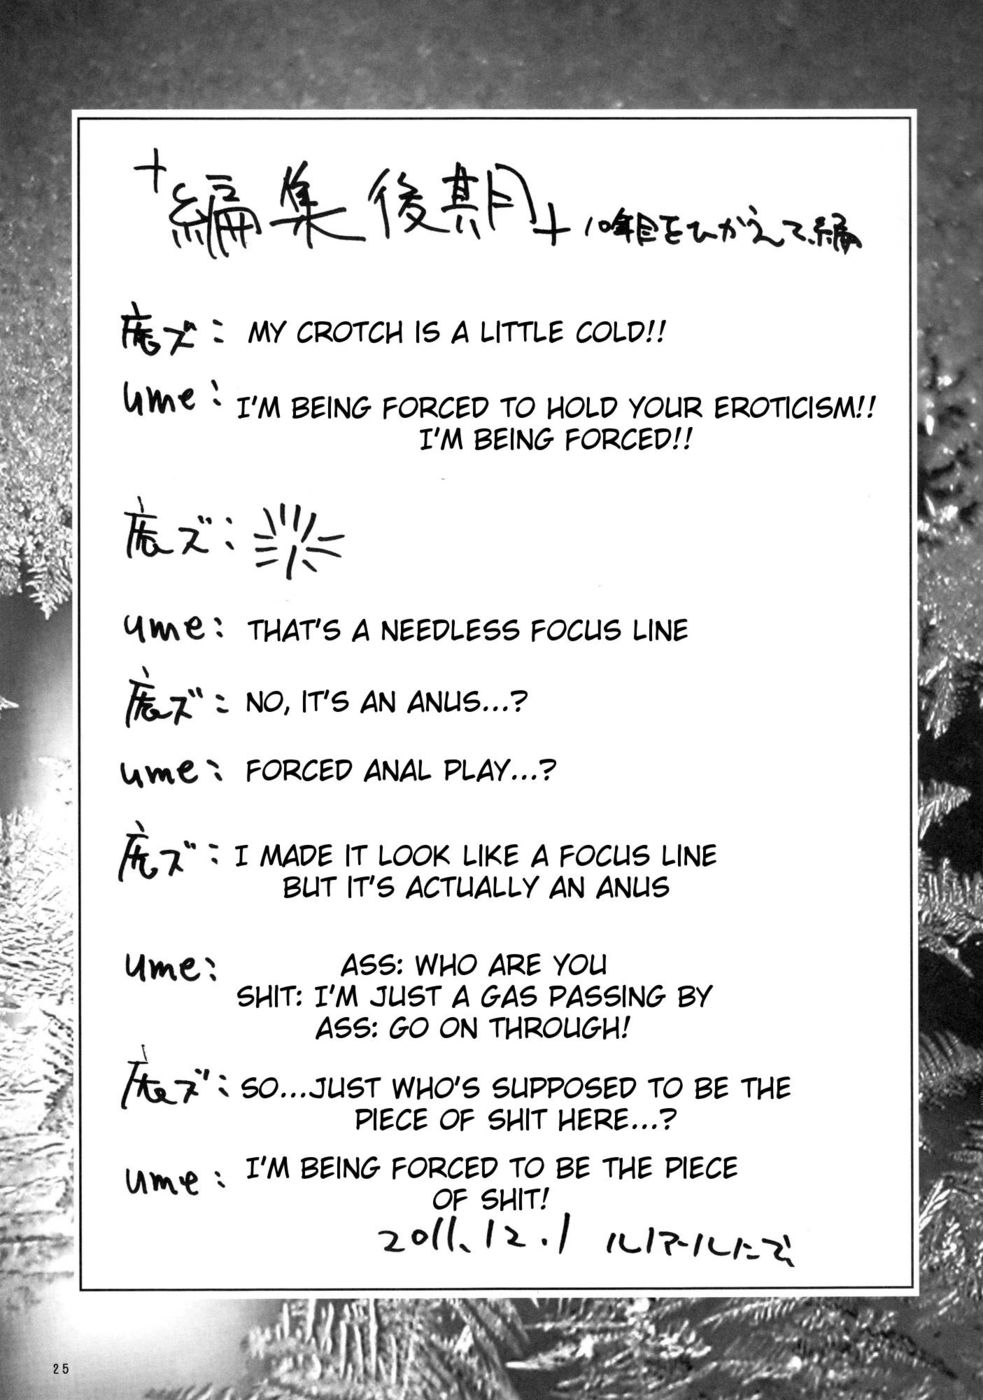 +編集後期+ 10年目をひかえて、編
鹿ズ: MY CROTCH IS A LITTLE COLD!!
ume: I'M BEING FORCED TO HOLD YOUR EROTICISM!!
I'M BEING FORCED!!
ズ:
ume: THAT'S A NEEDLESS FOCUS LINE
ズ: NO, IT'S AN ANUS...?
ume: FORCED ANAL PLAY...?
ズ: I MADE IT LOOK LIKE A FOCUS LINE
BUT IT'S ACTUALLY AN ANUS
ume: ASS: WHO ARE YOU
SHIT: I'M JUST A GAS PASSING BY
ASS: GO ON THROUGH!
ズ: SO...JUST WHO'S SUPPOSED TO BE THE
PIECE OF SHIT HERE...?
ume: I'M BEING FORCED TO BE THE PIECE
OF SHIT!
2011.12.1 ルノアールにて
25